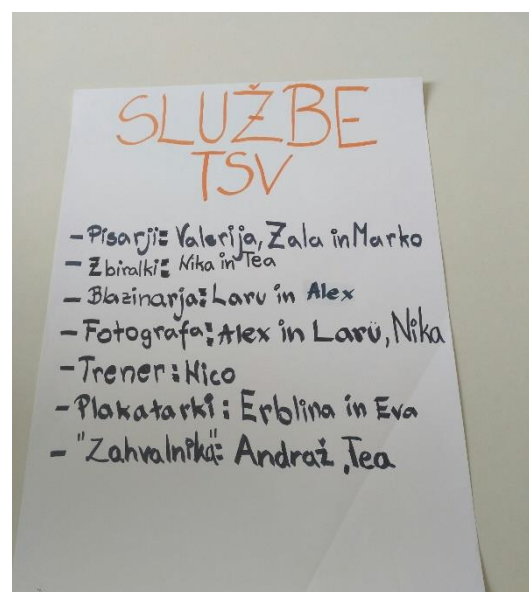 SLUŽBE
TSV
- Pisarji: Valerija, Zala in Marko
- Zbiralki: Nika in Tea
- Blazinarja: Laru in Alex
- Fotografa: Alex in Laru, Nika
- Trener: Nico
- Plakatarki: Erblina in Eva
- "Zahvalnika": Andraž, Tea